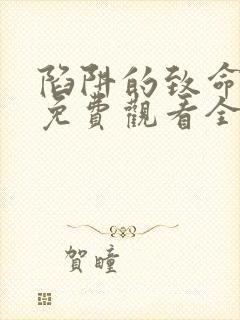 陷阱的致命
免費觀看全
賀瞳